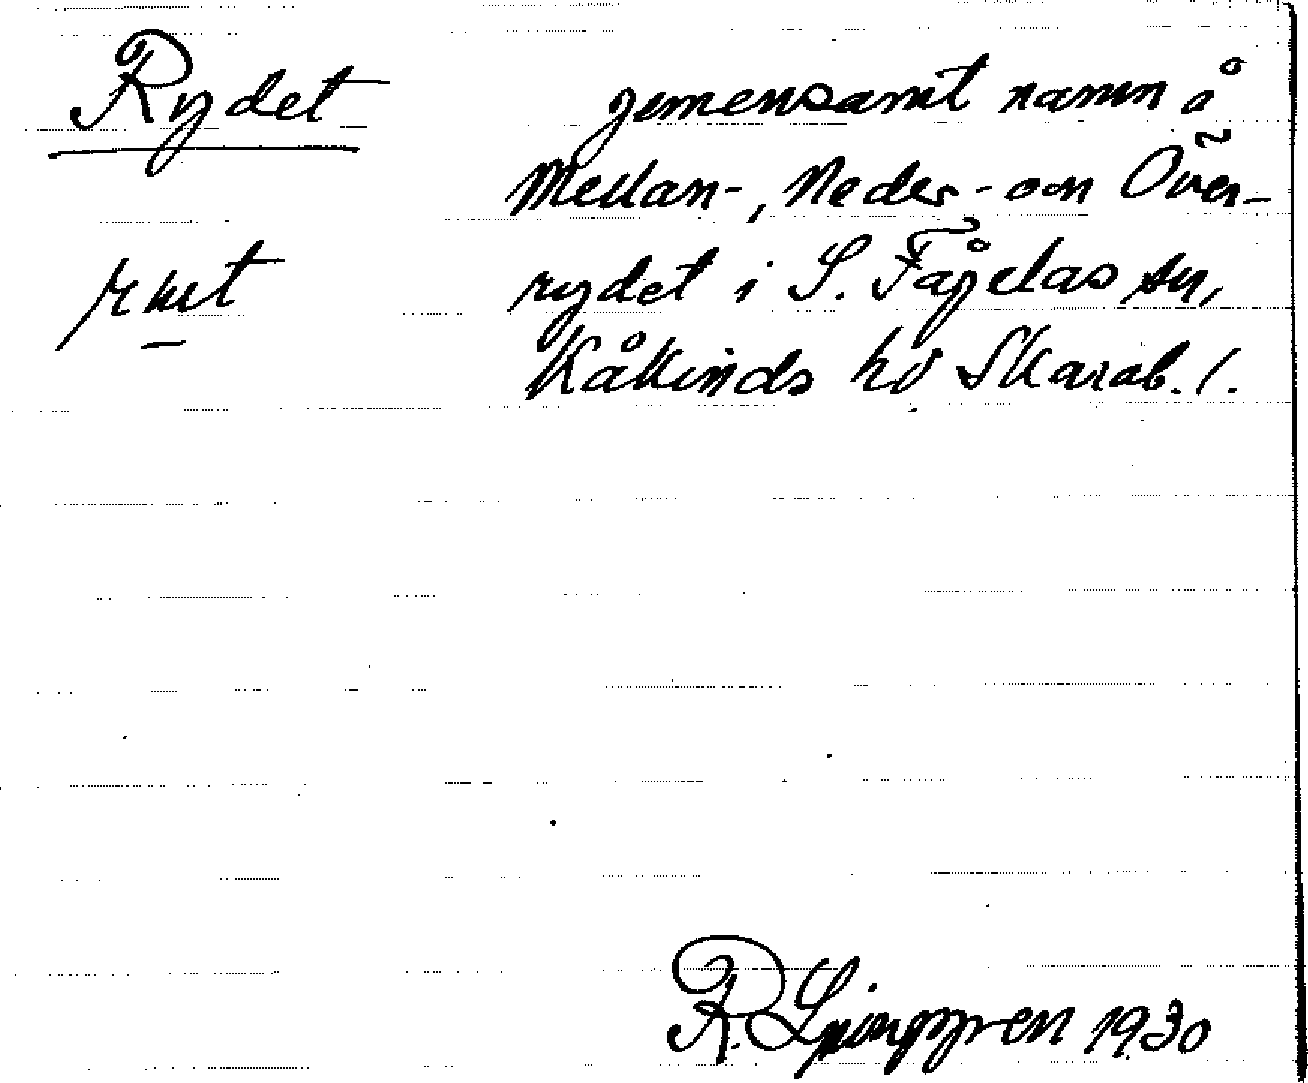 Rydet gemensamt namn å
Mellan-, Neder- och Över-
rydet i S. Fågelås sn,
Kåkinds hd Skarab. l.
R. Ljunggren 1930